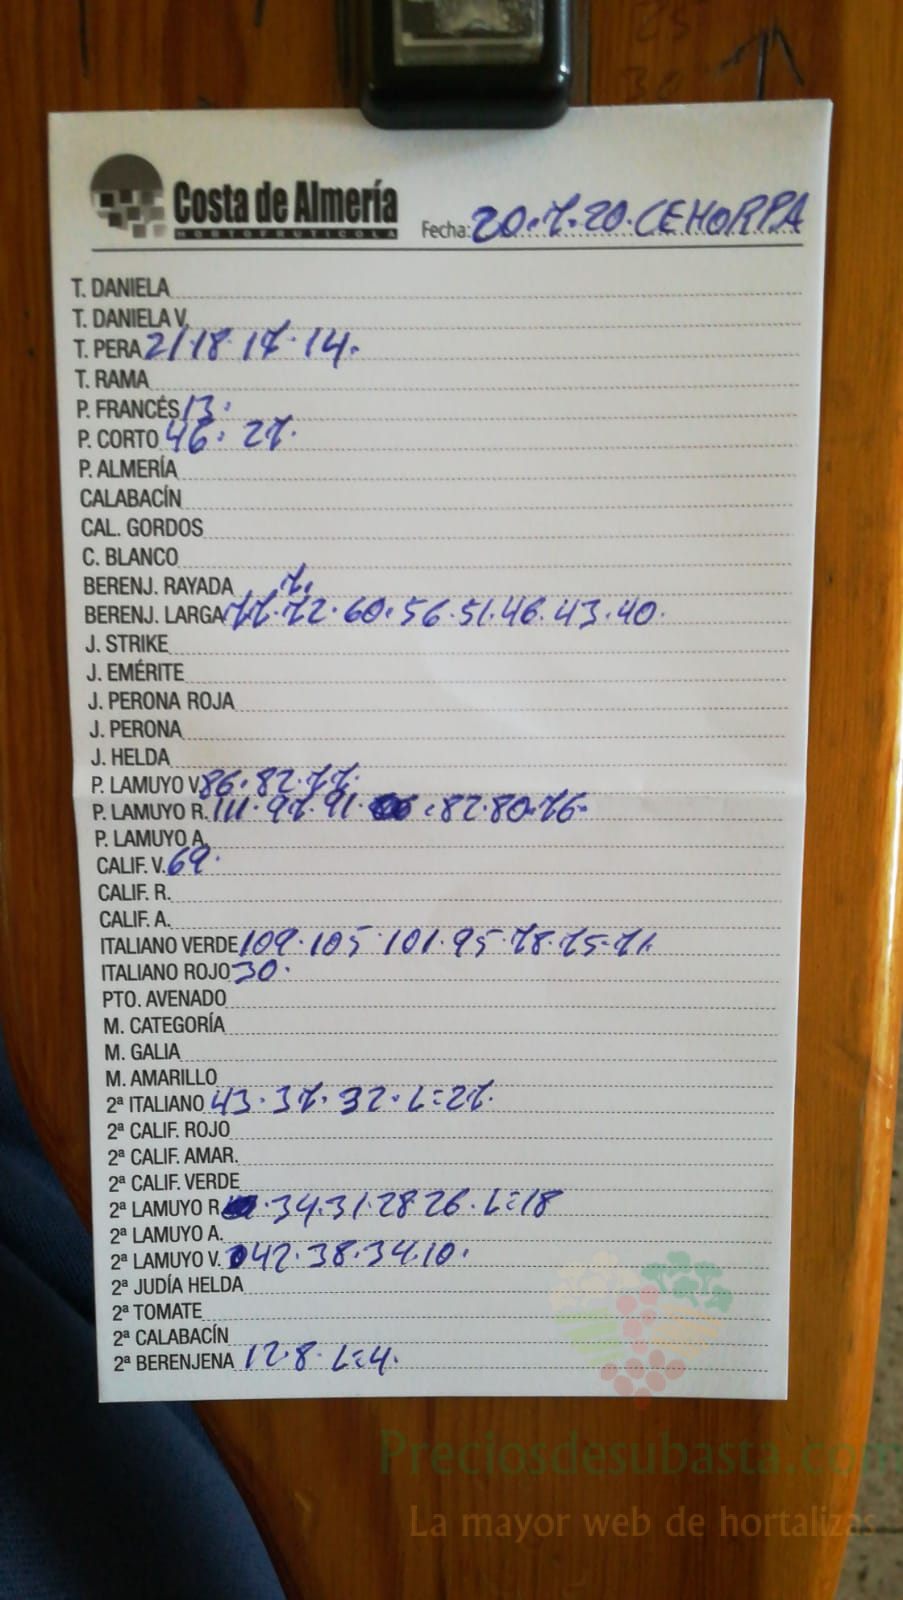 Costa de Almería
HORTOFRUTICOLA
Fecha: 20.7.20. CEHORPA
T. DANIELA
T. DANIELA V.
T. PERA 21 18 17 14.
T. RAMA
P. FRANCÉS 13.
P. CORTO 46. 27.
P. ALMERÍA
CALABACÍN
CAL. GORDOS
C. BLANCO
BERENJ. RAYADA 7.
BERENJ. LARGA 77.72.60.56.51.46.43.40.
J. STRIKE
J. EMÉRITE
J. PERONA ROJA
J. PERONA
J. HELDA
P. LAMUYO V. 86.82.77.
P. LAMUYO R. 111.97.91. .82.80.76.
P. LAMUYO A.
CALIF. V. 69.
CALIF. R.
CALIF. A.
ITALIANO VERDE 109.105.101.95.78.75.71.
ITALIANO ROJO 30.
PTO. AVENADO
M. CATEGORÍA
M. GALIA
M. AMARILLO
2ª ITALIANO 43.37.32.L=27.
2ª CALIF. ROJO
2ª CALIF. AMAR.
2ª CALIF. VERDE
2ª LAMUYO R. .34.31.28 26.L=18
2ª LAMUYO A.
2ª LAMUYO V. 42.38.34.10.
2ª JUDÍA HELDA
2ª TOMATE
2ª CALABACÍN
2ª BERENJENA 12.8.L=4.
Preciosdesubasta.com
La mayor web de hortalizas